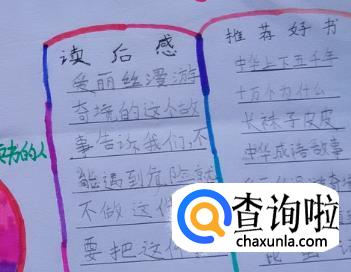 读后感
爱丽丝漫游
奇境的这个故
事告诉我们,不
能遇到危险就
不做这件
要把这件
推荐好书
中华上下五千年
十万个为什么
长袜子皮皮
中华成语故事
书的人
查询啦
chaxunla.com